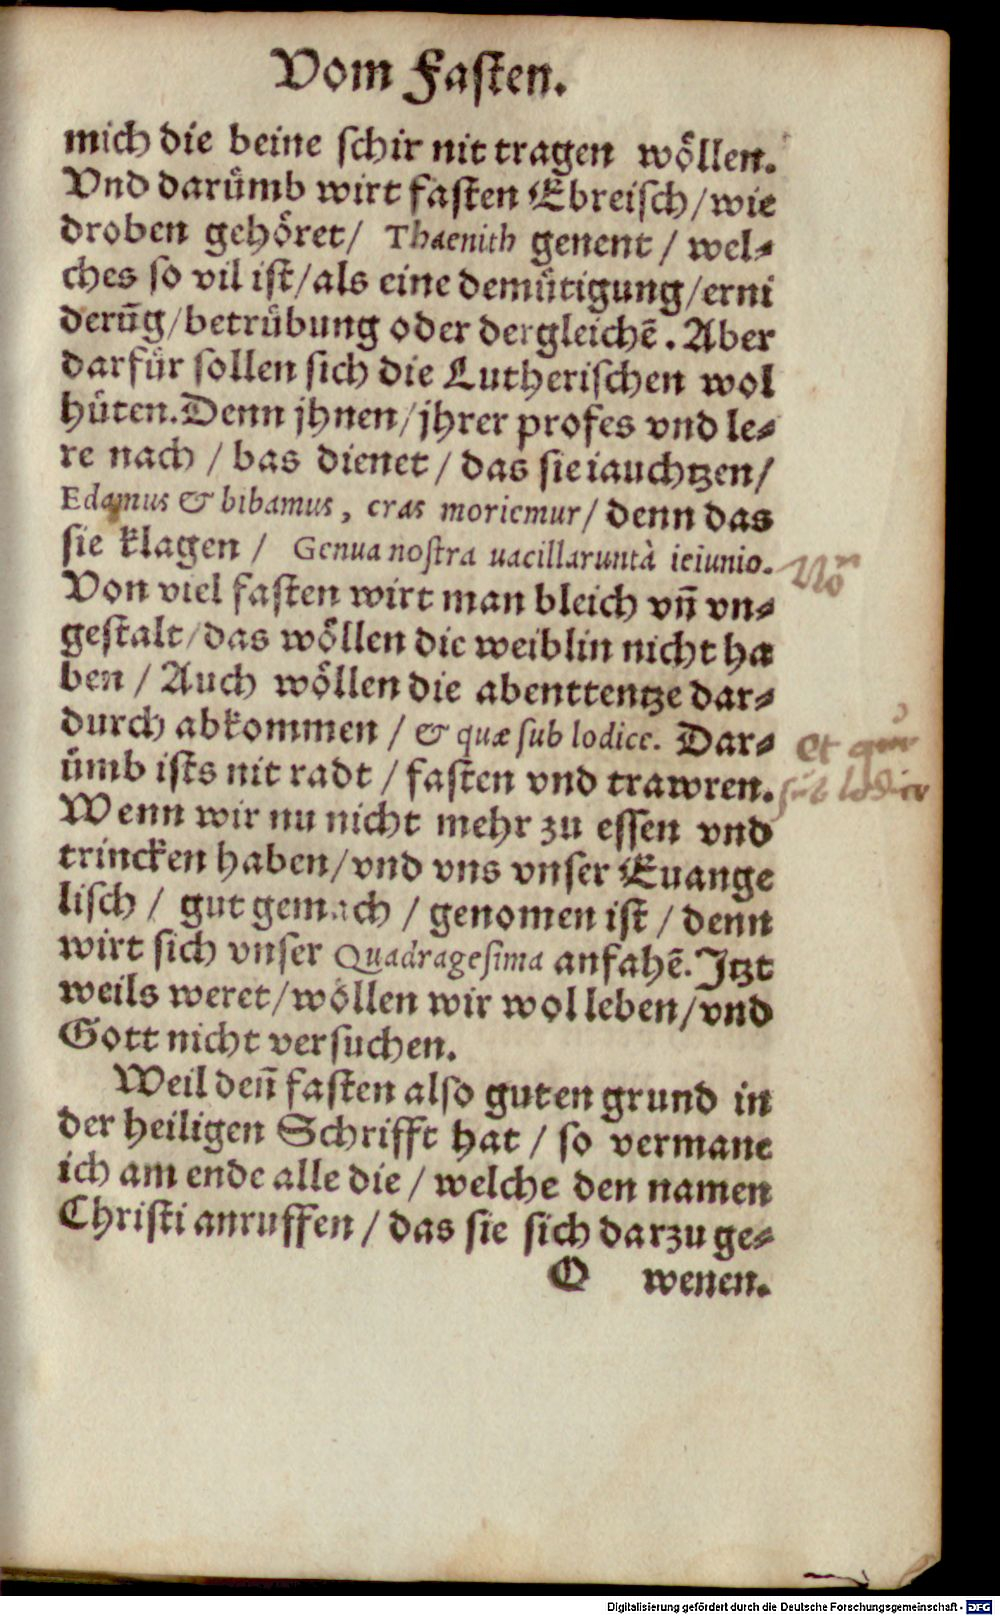 Vom Fasten.
mich die beine schir nit tragen wöllen.
Vnd darümb wirt fasten Ebreisch/wie
droben gehöret/ Thaenith genent / wel-
ches so vil ist/als eine demütigung/erni
derūg/betrübung oder dergleichē. Aber
darfür sollen sich die Lutherischen wol
hüten. Denn jhnen/jhrer profes vnd le-
re nach / bas dienet / das sie iauchtzen/
Edamus & bibamus, cras moriemur/ denn das
sie klagen / Genua nostra uacillaruntà ieiunio.
Von viel fasten wirt man bleich vñ vn-
gestalt/das wöllen die weiblin nicht ha
ben / Auch wöllen die abenttentze dar-
durch abkommen / & quæ sub lodice. Dar-
ümb ists nit radt / fasten vnd trawren.
Wenn wir nu nicht mehr zu essen vnd
trincken haben/vnd vns vnser Euange
lisch / gut gemach / genomen ist / denn
wirt sich vnser Quadragesima anfahē. Itzt
weils weret/wöllen wir wol leben/vnd
Gott nicht versuchen.
Weil deñ fasten also guten grund in
der heiligen Schrifft hat / so vermane
ich am ende alle die / welche den namen
Christi anruffen / das sie sich darzu ge-
Q wenen.
Et quae
sub lodice
Digitalisierung gefördert durch die Deutsche Forschungsgemeinschaft - DFG